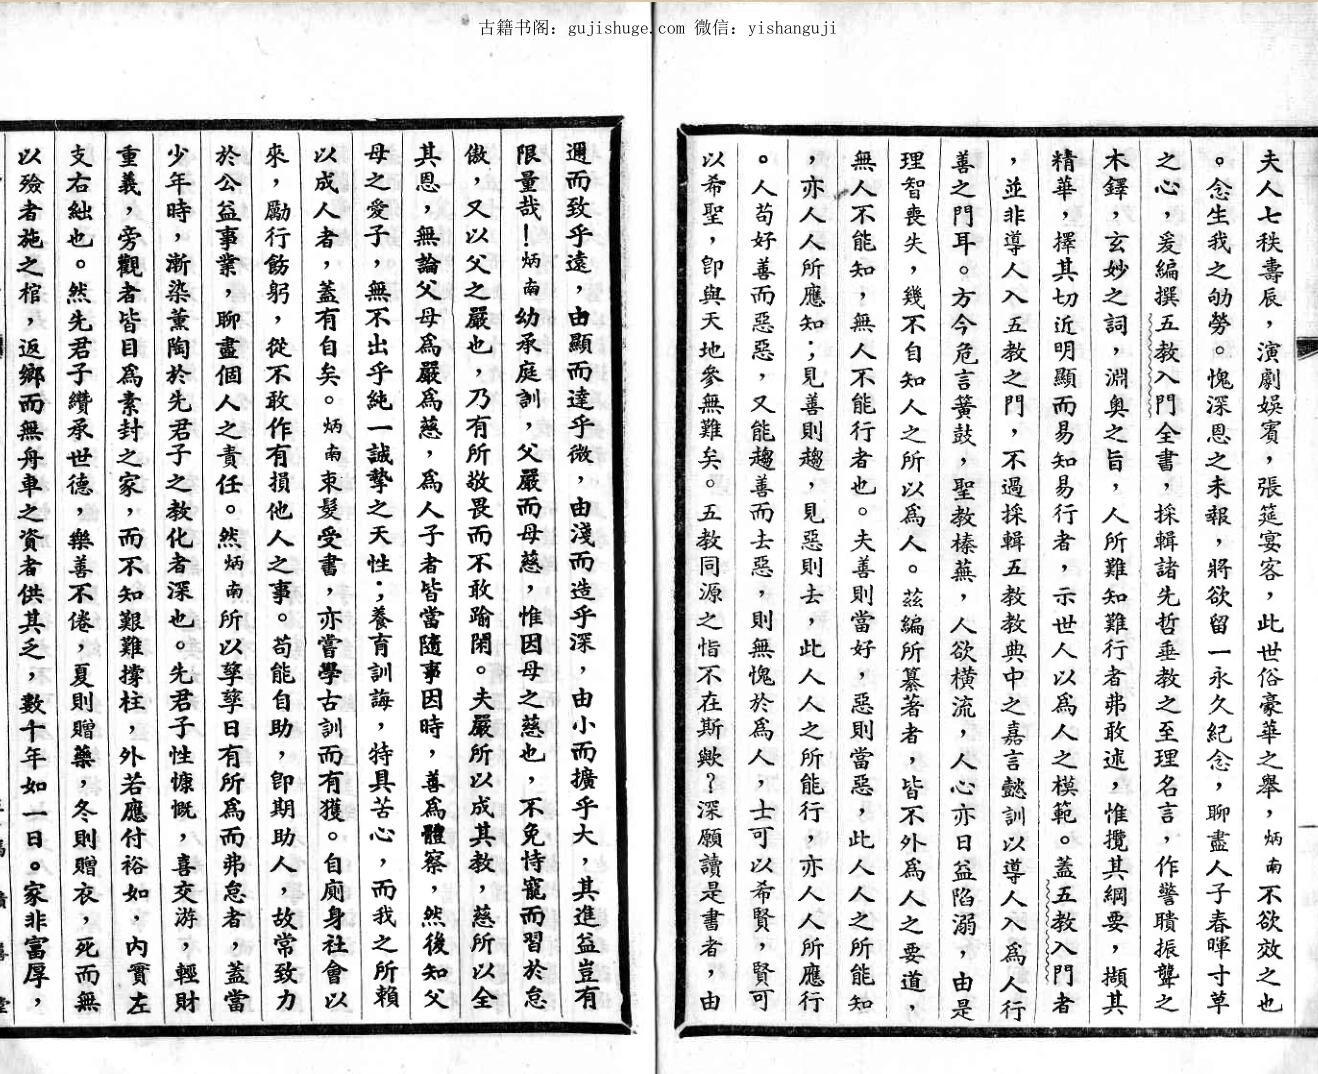 古籍书阁：gujishuge.com 微信：yishanguji
夫人七秩壽辰，演劇娛賓，張筵宴客，此世俗豪華之舉，炳南不欲效之也
。念生我之劬勞。愧深恩之未報，將欲留一永久紀念，聊盡人子春暉寸草
之心，爰編撰五教入門全書，採輯諸先哲垂教之至理名言，作警聵振聾之
木鐸，玄妙之詞，淵奧之旨，人所難知難行者弗敢述，惟攬其綱要，擷其
精華，擇其切近明顯而易知易行者，示世人以為人之模範。蓋五教入門者
，並非導人入五教之門，不過採輯五教教典中之嘉言懿訓以導人入為人行
善之門耳。方今危言簧鼓，聖教榛蕪，人欲橫流，人心亦日益陷溺，由是
理智喪失，幾不自知人之所以為人。茲編所纂著者，皆不外為人之要道，
無人不能知，無人不能行者也。夫善則當好，惡則當惡，此人人之所能知
，亦人人所應知；見善則趨，見惡則去，此人人之所能行，亦人人所應行
。人苟好善而惡惡，又能趨善而去惡，則無愧於為人，士可以希賢，賢可
以希聖，卽與天地參無難矣。五教同源之恉不在斯歟？深願讀是書者，由
邇而致乎遠，由顯而達乎微，由淺而造乎深，由小而擴乎大，其進益豈有
限量哉！炳南幼承庭訓，父嚴而母慈，惟因母之慈也，不免恃寵而習於怠
傲，又以父之嚴也，乃有所敬畏而不敢踰閑。夫嚴所以成其教，慈所以全
其恩，無論父母為嚴為慈，為人子者皆當隨事因時，善為體察，然後知父
母之愛子，無不出乎純一誠摯之天性；養育訓誨，特具苦心，而我之所賴
以成人者，蓋有自矣。炳南束髮受書，亦嘗學古訓而有獲。自廁身社會以
來，勵行飭躬，從不敢作有損他人之事。苟能自助，卽期助人，故常致力
於公益事業，聊盡個人之責任。然炳南所以孳孳日有所為而弗怠者，蓋當
少年時，漸染薰陶於先君子之教化者深也。先君子性慷慨，喜交游，輕財
重義，旁觀者皆目為素封之家，而不知艱難撐柱，外若應付裕如，內實左
支右絀也。然先君子纘承世德，樂善不倦，夏則贈藥，冬則贈衣，死而無
以殮者施之棺，返鄉而無舟車之資者供其乏，數十年如一日。家非富厚，